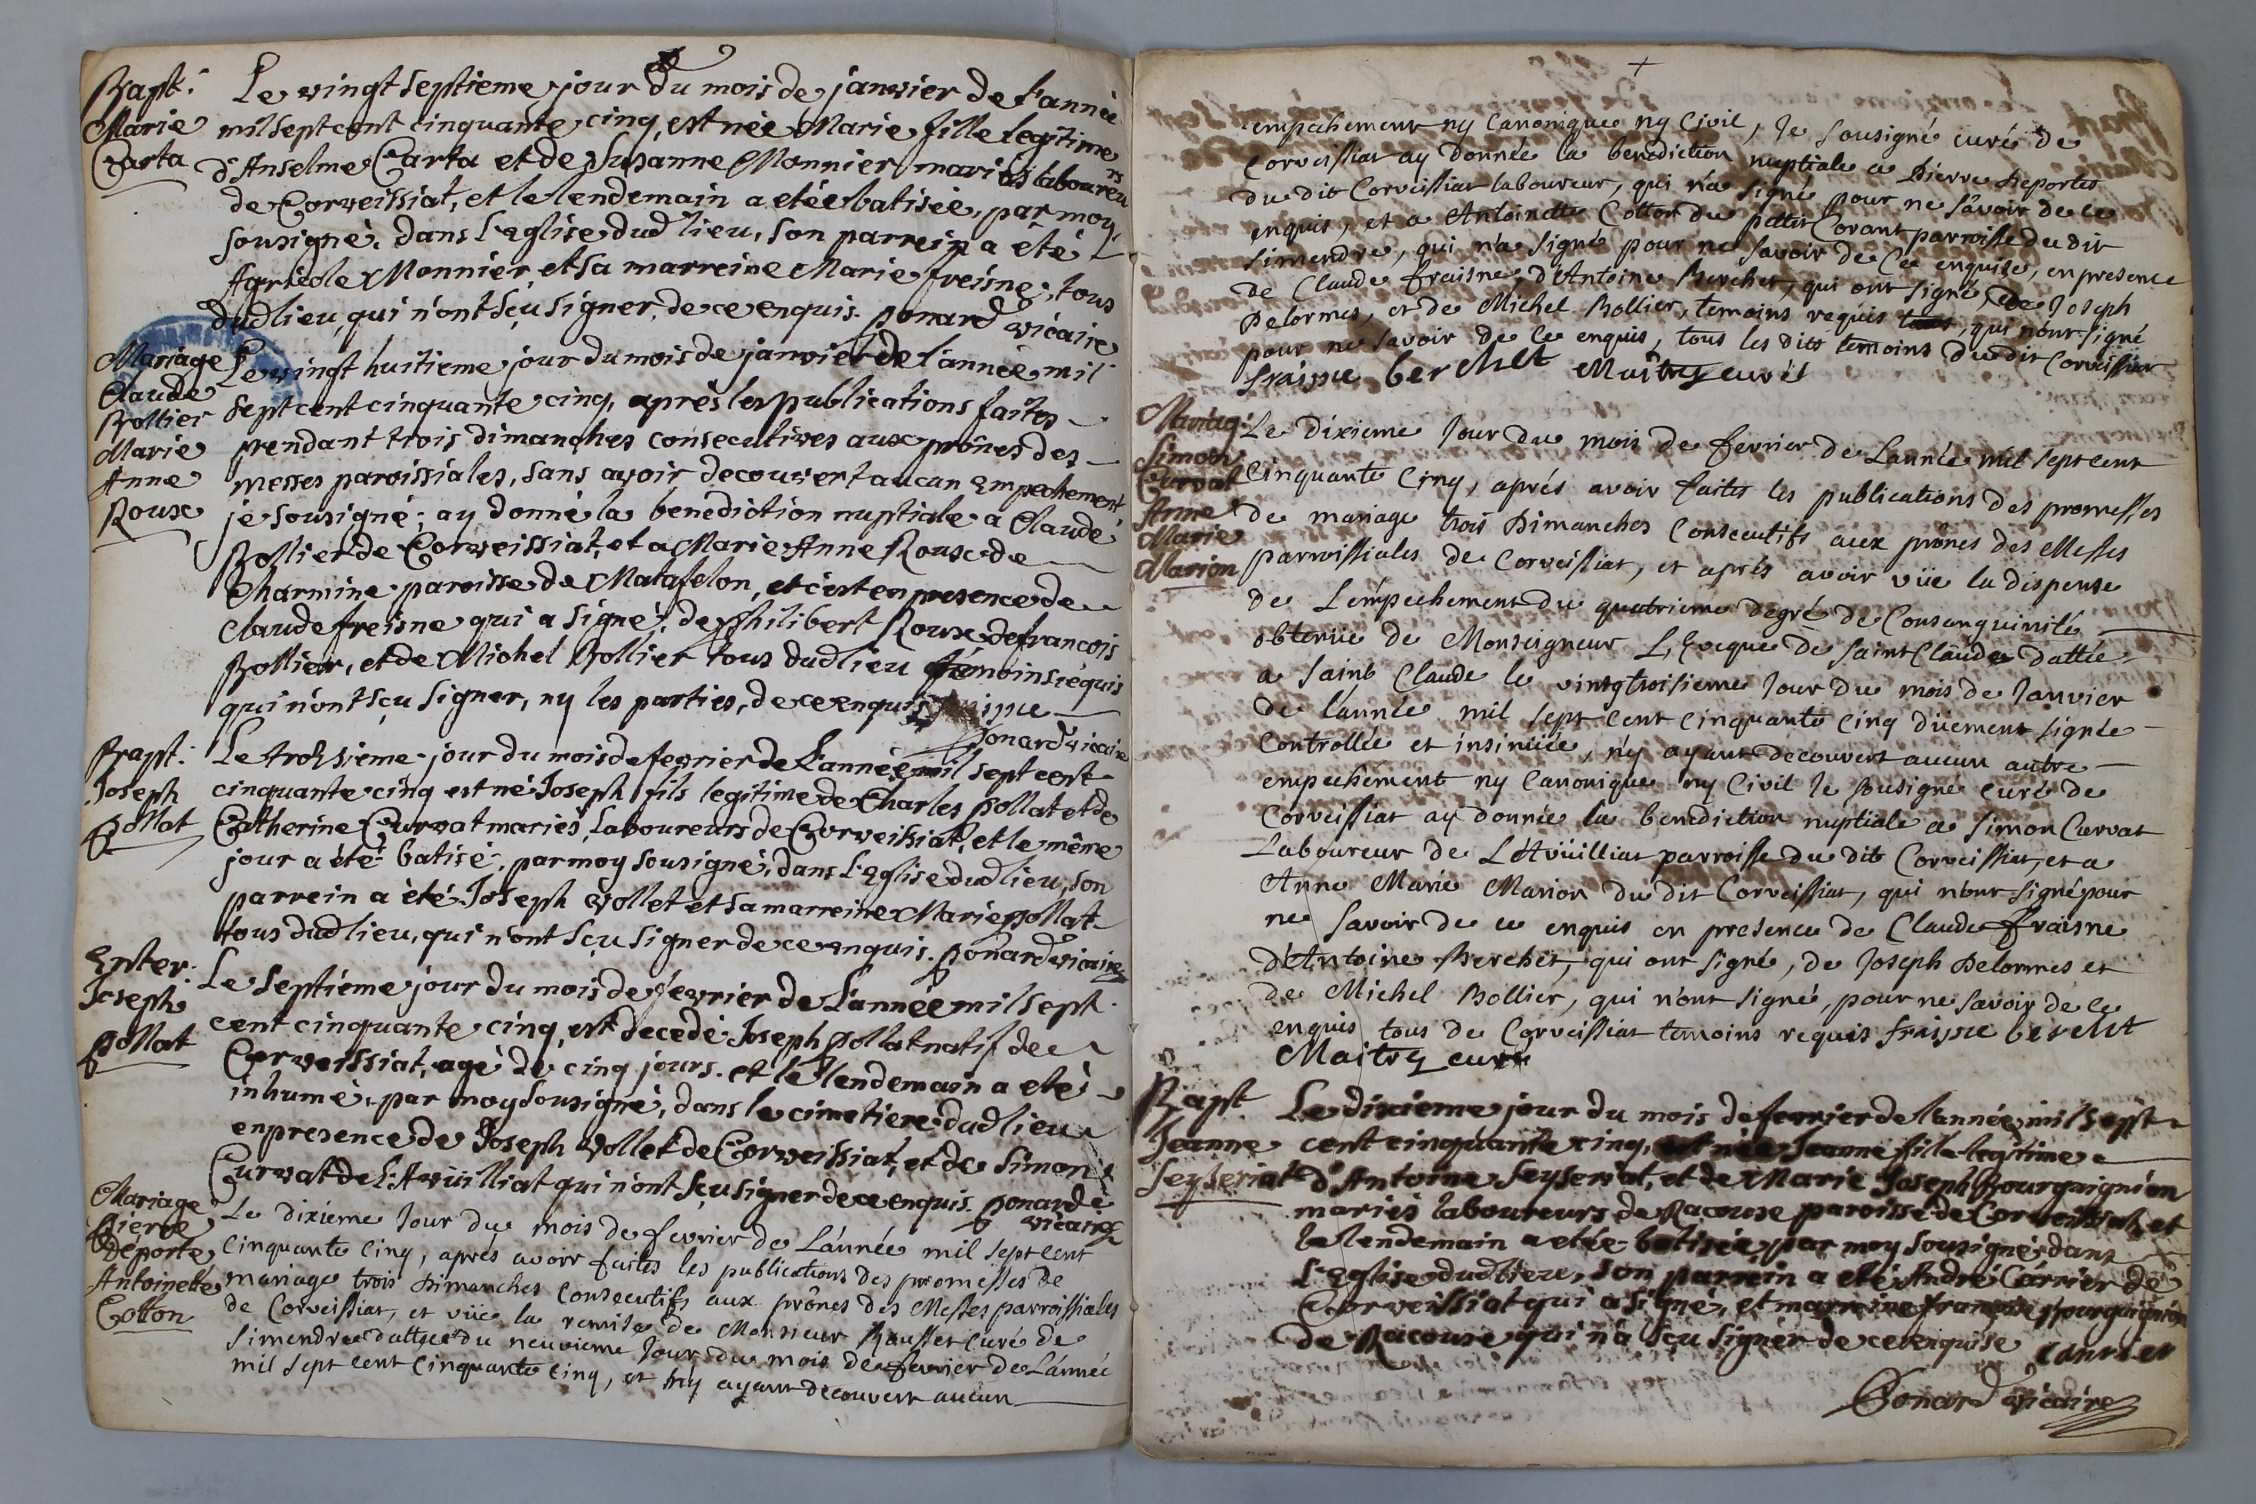 Bapt:
Marie
Carta
Le vingt septieme jour du mois de janvier de l'année
mil sept cent cinquante cinq, est née Marie fille legitime
d'Anselme Carta et de Susanne Monnier mariés laboureurs
de Corveissiat, et le lendemain a etée batisée, par moy
sousigné, dans L'Eglise dud lieu, son parrein a été
Agricole Monnier, et sa marreine Marie freisne, tous
dud lieu, qui n'ont sçu signer, de ce enquis. ponard vicaire
Mariage
Claude
Bollier
Marie
Anne
Roux
Le vingt huitieme jour du mois de janvier de l'année mil
sept cent cinquante cinq, après les publications faites
pendant trois dimanches consecutives aux prônes des
messes paroissiales, sans avoir decouvert aucun empechement
je sousigné, ay donné la benediction nuptiale a Claude
Bollier de Corveissiat, et a Marie Anne Roux de
Charmine paroisse de Matafelon, et c'est en presence de
Claude freisne qui a signé, de Philibert Roux de francois
Bollier, et de Michel Bollier tous dud lieu témoins réquis
qui n'ont sçu signer, ny les parties, de ce enquis
ponard vicaire
Bapt:
Joseph
pollat
Le troisieme jour du mois de fevrier de L'année mil sept cent
cinquante cinq est né Joseph fils legitime de Charles pollat et de
Catherine Curvat mariés, Laboureurs de Corveissiat, et le même
jour a été batisé, par moy sousigné, dans L'Eglise dud lieu, son
parrein a été Joseph vollet et sa marreine Marie pollat
tous dud lieu, qui n'ont sçu signer de ce enquis. ponard vicaire
Enter:
Joseph
pollat
Le septiéme jour du mois de février de L'année mil sept
cent cinquante cinq, est decedé Joseph pollat natif de
Corveissiat, agé de cinq jours. et le lendemain a eté
inhumé, par moy sousigné, dans le cimetiere dud lieu
en presence de Joseph vollet de Corveissiat, et de Simon
Curvat de L'Avuilliat qui n'ont sçu signer de ce enquis. ponard
vicaire
Mariage
Pierre
deporte
Antoinette
Cotton
Le dixieme Jour du mois de fevrier de L'année mil sept cent
cinquante cinq, aprés avoir faites les publications des promesses de
mariage trois Dimanches Consecutifs aux prônes des Messes parroissiales
de Corveissiat, et vüe la remise de Monsieur Rousset Curé de
Simendre dattée du neuvieme Jour du mois de fevrier de L'année
mil sept cent cinquante cinq, et n'y ayant decouvert aucun
empechement ny Canonique ny Civil, Je Sousigné curé de
Corveissiat ay Donnée la benediction nuptiale a Pierre Deportes
du dit Corveissiat laboureur, qui n'a signé pour ne sâvoir de ce
enquis, et a Antoinette Cotton du petit Corant parroisse du dit
Simendre, qui n'a signé pour ne savoir de Ce enquise, en presence
de Claude fraisne, d'Antoine Berchet, qui ont signé, de Joseph
Delormes, et de Michel Bollier, temoins requis, qui n'ont signé
pour ne savoir de ce enquis, tous les dits temoins du dit Corveissiat
fraisne berchet Maitrez curé
Mariag:
Simon
Curvat
Anne
Marie
Marion
Le Dixieme Jour du mois de fevrier de L'année mil sept cent
Cinquante Cinq, aprés avoir faites les publications des promesses
de mariage trois Dimanches Consecutifs aux prônes des Messes
parroissiales de Corveissiat, et aprés avoir vüe la dispense
de L'empechement du quatrieme degré de Consanguinité
obtenüe de Monseigneur L'Eveque de Saint Claude dattée
a Saint Claude le vingt troisieme Jour du mois de Janvier
de L'année mil sept cent cinquante cinq düement signée
Controllée et insinüée, n'y ayant decouvert aucun autre
empechement ny Canonique ny Civil Je sousigné curé de
Corveissiat ay donnée la benediction nuptiale a Simon Curvat
Laboureur de L'Avüilliat parroisse du dit Corveissiat, et a
Anne Marie Marion du dit Corveissiat, qui n'ont signé pour
ne savoir de ce enquis en presence de Claude fraisne
d'Antoine Berchet, qui ont signé, de Joseph Delormes et
de Michel Bollier, qui n'ont signé, pour ne savoir de ce
enquis tous de Corveissiat temoins requis fraisne berchet
Maitrez curé
Bapt
Jeanne
Seyseriat
Le dixieme jour du mois de fevrier de l'année mil sept
cent cinquante cinq, est née Jeanne fille legitime
d'Antoine Seyseriat, et de Marie Joseph Bourguignion
mariés laboureurs de Racouse paroisse de Corveissiat, et
le lendemain a etée batisée par moy sousigné, dans
L'Eglise dud lieu, son parrein a eté André Carrier de
Corveissiat qui a signé, et marreine françoise Bourguignion
de Racouse qui n'a sçu signer de ce enquise carrier
Ponard vicaire